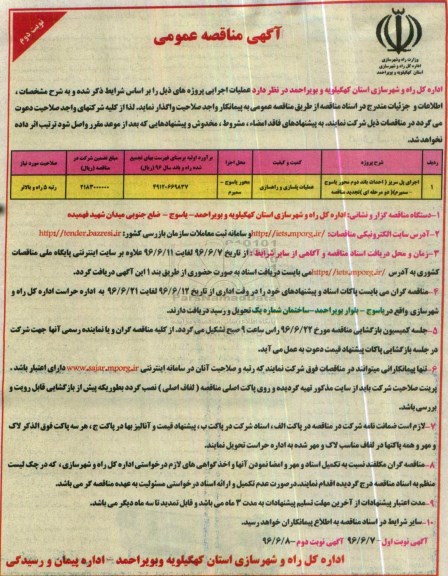 نوبت دوم
آگهی مناقصه عمومی
وزارت راه و شهرسازی
اداره کل راه و شهرسازی
استان کهگیلویه و بویراحمد
اداره کل راه و شهرسازی استان کهگیلویه و بویراحمد در نظر دارد عملیات اجرایی پروژه های ذیل را بر اساس شرایط ذکر شده و به شرح مشخصات ،
اطلاعات و جزئیات مندرج در اسناد مناقصه از طریق مناقصه عمومی به پیمانکار واجد صلاحیت واگذار نماید. لذا از کلیه شرکتهای واجد صلاحیت دعوت
می گردد در مناقصات ذیل شرکت نمایند. به پیشنهادهای فاقد امضاء ، مشروط ، مخدوش و پیشنهادهایی که بعد از موعد مقرر واصل شود ترتیب اثر داده
نخواهد شد.
ردیف شرح پروژه کمیت و کیفیت محل اجرا برآورد اولیه برمبنای فهرست بهای تجمیع شده راه و باند سال ۹۶ (ریال) مبلغ تضمین شرکت در مناقصه (ریال) صلاحیت مورد نیاز
۱ اجرای پل سریز ( احداث باند دوم محور یاسوج - سمیرم)( دو مرحله ای )تجدید مناقصه عملیات پلسازی و راهسازی محور یاسوج - سمیرم ۴۹۱۲۰۶۶۹۸۲۷ ۲۱۸۳۰۰۰۰۰۰ رتبه ۵ راه و بالاتر
۱-دستگاه مناقصه گزار و نشانی: اداره کل راه و شهرسازی استان کهگیلویه و بویراحمد- یاسوج - ضلع جنوبی میدان شهید فهمیده
۲-آدرس سایت الکترونیکی مناقصات: http://iets.mporg.ir/ و سامانه ثبت معاملات سازمان بازرسی کشور: http://tender.bazresi.ir
۳-زمان و محل دریافت اسناد مناقصه و آگاهی از سایر شرایط : از تاریخ ۹۶/۶/۷ لغایت ۹۶/۶/۱۱ علاوه بر سایت اینترنتی پایگاه ملی مناقصات
کشوری به آدرس http://iets.mporg.ir/ می بایست دریافت اسناد به صورت حضوری از طریق بند ۱ این آگهی دریافت گردد.
۴-مناقصه گران می بایست پاکات اسناد و پیشنهادهای خود را در وقت اداری از تاریخ ۹۶/۶/۱۲ لغایت ۹۶/۶/۲۱ به اداره حراست اداره کل راه و
شهرسازی واقع در یاسوج - بلوار بویراحمد-ساختمان شماره یک تحویل و رسید دریافت دارند.
۵- جلسه کمیسیون بازگشایی مناقصه مورخ ۹۶/۶/۲۲ راس ساعت ۹ صبح تشکیل می گردد. از کلیه مناقصه گران و یا نماینده رسمی آنها جهت شرکت
در جلسه بازگشایی پاکات پیشنهاد قیمت دعوت به عمل می آید.
۶-تنها پیمانکارانی میتوانند در مناقصات فوق شرکت نمایند که رتبه و صلاحیت آنان در سامانه اینترنتی www.sajar.mporg.ir دارای اعتبار باشد .
پرینت صلاحیت شرکت باید از سایت مذکور تهیه گردیده و روی پاکت اصلی مناقصه ( لفاف اصلی ) نصب گردد بطوریکه پیش از بازگشایی قابل رویت و
بررسی باشد.
۷-لازم است ضمانت نامه شرکت در مناقصه در پاکت الف ، اسناد شرکت در پاکت ب ، پیشنهاد قیمت و آنالیز بها در پاکت ج ، هر سه پاکت فوق الذکر لاک
و مهر و همه پاکتها در لفاف مناسب لاک و مهر شده به اداره حراست تحویل نمایند.
۸-مناقصه گران مکلفند نسبت به تکمیل اسناد و مهر و امضا نمودن آنها و اخذ گواهی های لازم درخواستی اداره کل راه و شهرسازی ، که در چک لیست
منظم به اسناد مناقصه درج گردیده اقدام نمایند.در صورت عدم تکمیل و ارائه اسناد درخواستی مسئولیت به عهده مناقصه گر می باشد.
۹-مدت اعتبار پیشنهادات از آخرین مهلت تسلیم پیشنهادات به مدت ۳ ماه می باشد و قابل تمدید تا سه ماه دیگر می باشد.
۱۰-سایر شرایط در اسناد مناقصه به اطلاع پیمانکاران خواهد رسید.
آگهی نوبت اول - ۹۶/۶/۷ آگهی نوبت دوم - ۹۶/۶/۸
اداره کل راه و شهرسازی استان کهگیلویه وبویراحمد - اداره پیمان و رسیدگی